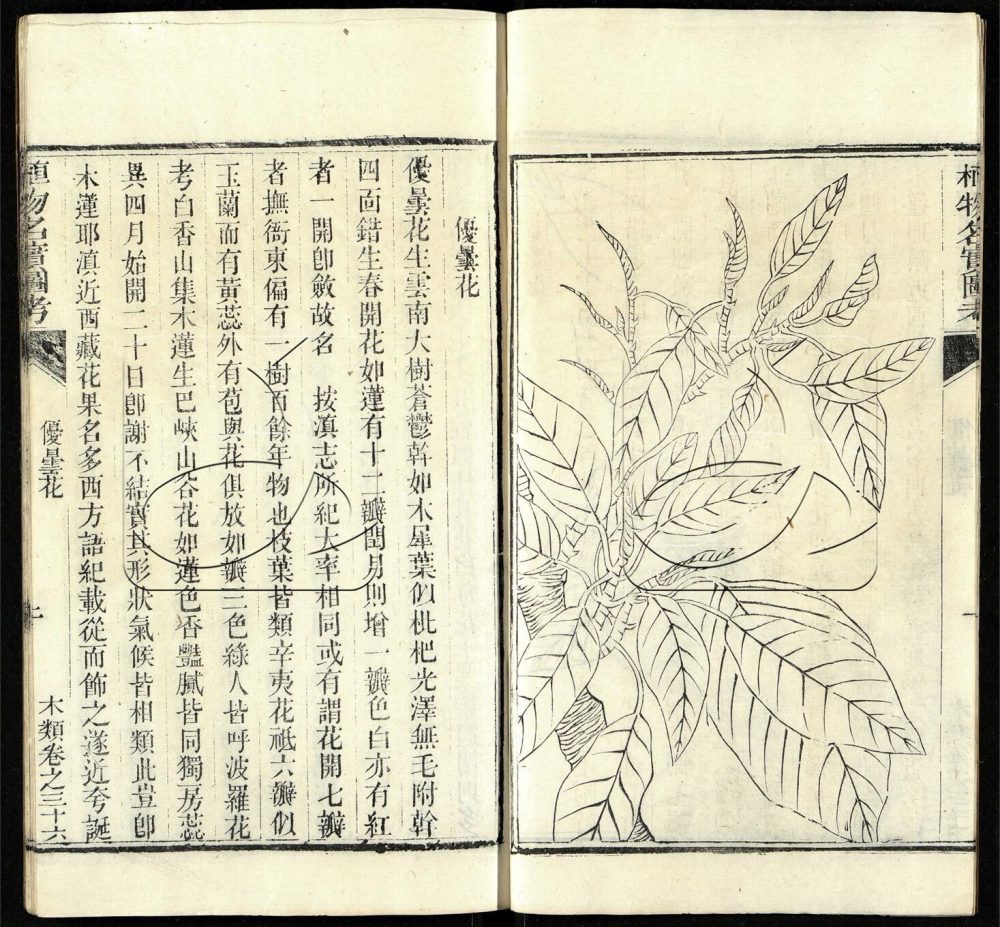 植物名實圖考
優曇花
優曇花生雲南大樹蒼鬱幹如木犀葉似枇杷光澤無毛附幹
四面錯生春開花如蓮有十二瓣閏月則增一瓣色白亦有紅
者一開卽斂故名 按滇志所紀大率相同或有謂花開七瓣
者撫衙東偏有一樹百餘年物也枝葉皆類辛夷花祗六瓣似
玉蘭而有黃蕊外有苞與花俱放如瓣三色綠人皆呼波羅花
考白香山集木蓮生巴峽山谷花如蓮色香豔膩皆同獨房蕊
異四月始開二十日卽謝不結實其形狀氣候皆相類此豈卽
木蓮耶滇近西藏花果名多西方語紀載從而飾之遂近夸誕
植物名實圖考
優曇花
木類卷之三十六